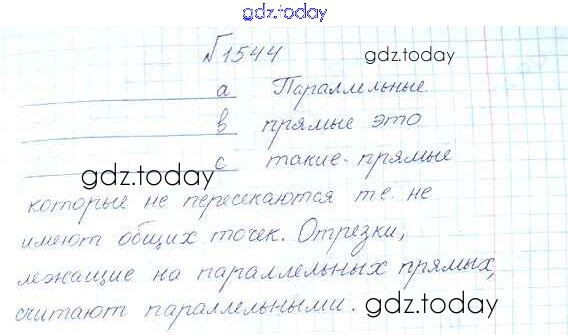 gdz.today
№1544 gdz.today
a Параллельные
в прямые это
с такие-прямые
gdz.today
которые не пересекаются те. не
имеют общих точек. Отрезки,
лежащие на параллельных прямых,
считают параллельными. gdz.today